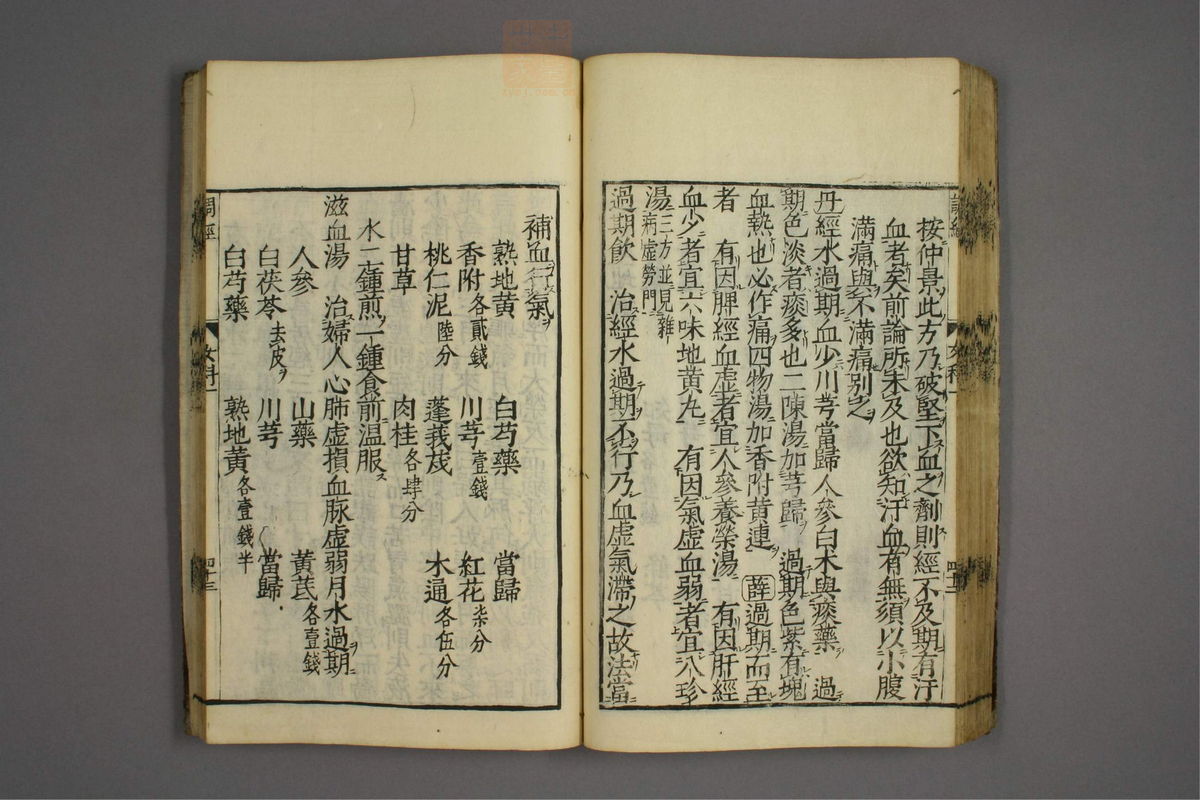 按仲景此方乃破堅下血之劑則經不及期有汙
血者矣前論所未及也欲知汙血有無須以小腹
滿痛與不滿痛別之
丹經水過期血少川芎當歸人參白朮與痰藥 過
期色淡者痰多也二陳湯加芎歸 過期色紫有塊
血熱也必作痛四物湯加香附黃連 薛過期而至
者 有因脾經血虛者宜人參養榮湯 有因肝經
血少者宜六味地黃丸 有因氣虛血弱者宜八珍
湯三方並見雜病虛勞門
過期飲 治經水過期不行乃血虛氣滯之故法當
補血行氣
熟地黃 白芍藥 當歸
香附各貳錢 川芎壹錢 紅花柒分
桃仁泥陸分 蓬莪茂 木通各伍分
甘草 肉桂各肆分
水二鍾煎一鍾食前溫服
滋血湯 治婦人心肺虛損血脉虛弱月水過期
人參 山藥 黃芪各壹錢
白茯苓去皮 川芎 當歸
白芍藥 熟地黃各壹錢半
調經
女科一
四十三